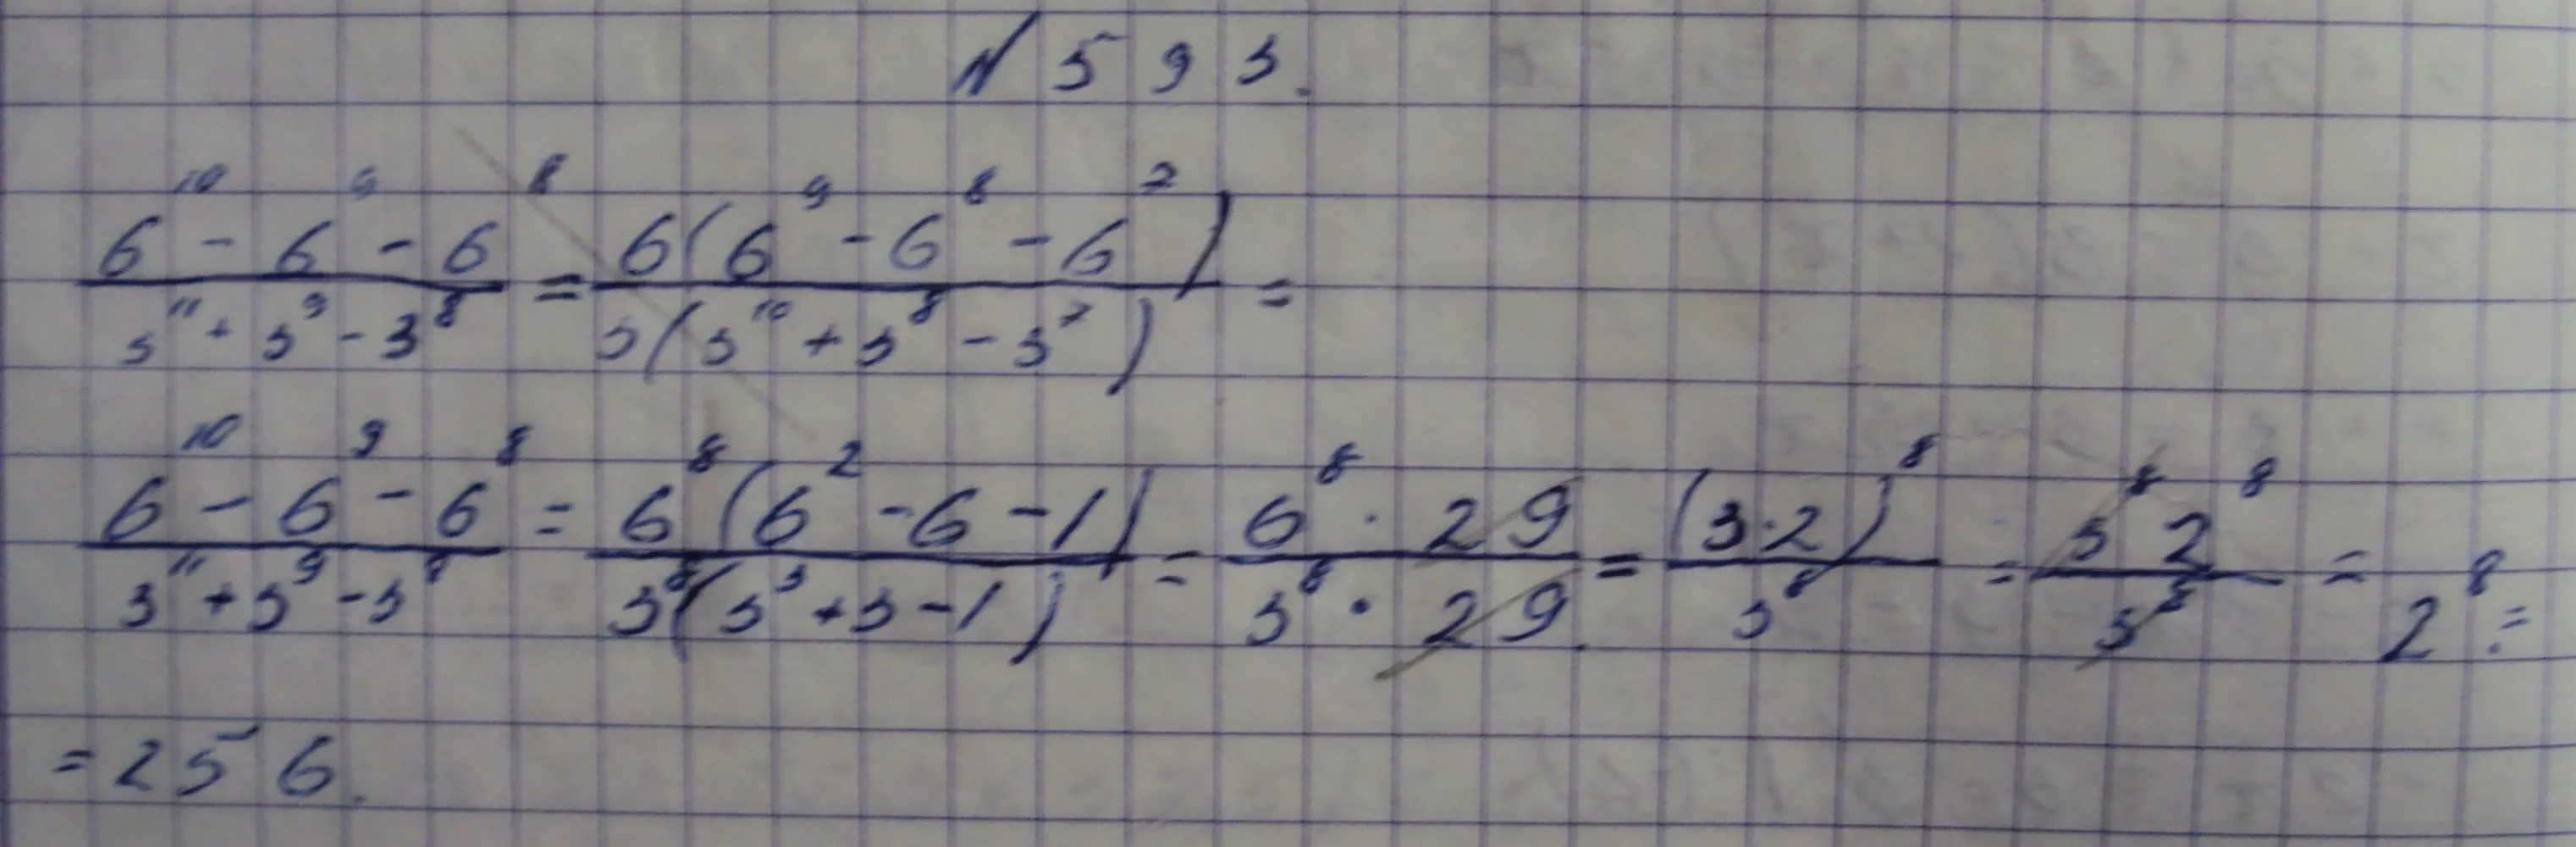 № 593.
(6^10 - 6^9 - 6^8)/(3^11 + 3^9 - 3^8) = 6(6^9 - 6^8 - 6^7)/3(3^10 + 3^8 - 3^7) =
(6^10 - 6^9 - 6^8)/(3^11 + 3^9 - 3^8) = 6^8(6^2 - 6 - 1)/3^8(3^3 + 3 - 1) = (6^8 · 29)/(3^8 · 29) = (3·2)^8/3^8 = 3^8 2^8/3^8 = 2^8 =
= 256.